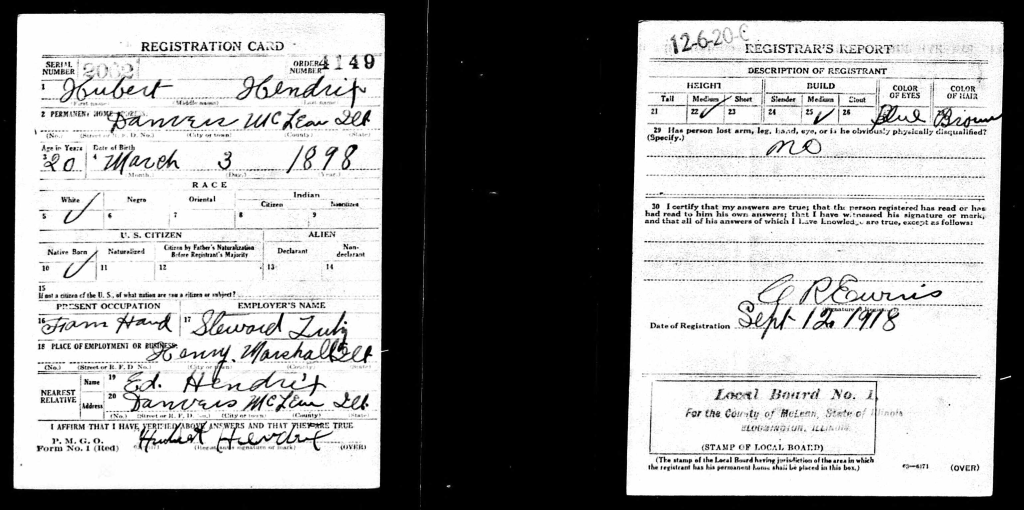 REGISTRATION CARD
SERIAL NUMBER 2062 ORDER NUMBER 4149
1 Hubert Hendrix
(First name) (Middle name) (Last name)
2 PERMANENT HOME ADDRESS:
Danvers McLean Ill
(No.) (Street or R. F. D. No.) (City or town) (County) (State)
Age in Years Date of Birth
3 20 4 March 3 1898
(Month.) (Day.) (Year.)
RACE
White Negro Oriental Indian
Citizen Noncitizen
5 ✓ 6 7 8 9
U. S. CITIZEN ALIEN
Native Born Naturalized Citizen by Father's Naturalization Before Registrant's Majority Declarant Non-declarant
10 ✓ 11 12 13 14
15
If not a citizen of the U. S., of what nation are you a citizen or subject?
PRESENT OCCUPATION EMPLOYER'S NAME
16 Farm Hand 17 Steward
18 PLACE OF EMPLOYMENT OR BUSINESS:
Henry. Marshall Ill
(No.) (Street or R. F. D. No.) (City or town) (County) (State)
NEAREST RELATIVE Name 19 Ed. Hendrix
Address 20 Danvers McLean Ill
(No.) (Street or R. F. D. No.) (City or town) (County) (State)
I AFFIRM THAT I HAVE VERIFIED ABOVE ANSWERS AND THAT THEY ARE TRUE
P. M. G. O.
Form No. 1 (Red) Hubert Hendrix
(Registrant's signature or mark) (OVER)
12-6-20-C
REGISTRAR'S REPORT
DESCRIPTION OF REGISTRANT
HEIGHT BUILD COLOR OF EYES COLOR OF HAIR
Tall Medium Short Slender Medium Stout
21 22 ✓ 23 24 25 ✓ 26 Blue Brown
29 Has person lost arm, leg, hand, eye, or is he obviously physically disqualified?
(Specify.) no
30 I certify that my answers are true; that the person registered has read or has
had read to him his own answers; that I have witnessed his signature or mark,
and that all of his answers of which I have knowledge are true, except as follows:
Date of Registration Sept 12 1918
Local Board No. 1,
For the County of McLean, State of Illinois
BLOOMINGTON, ILLINOIS.
(STAMP OF LOCAL BOARD)
(The stamp of the Local Board having jurisdiction of the area in which
the registrant has his permanent home shall be placed in this box.)
63—6171 (OVER)